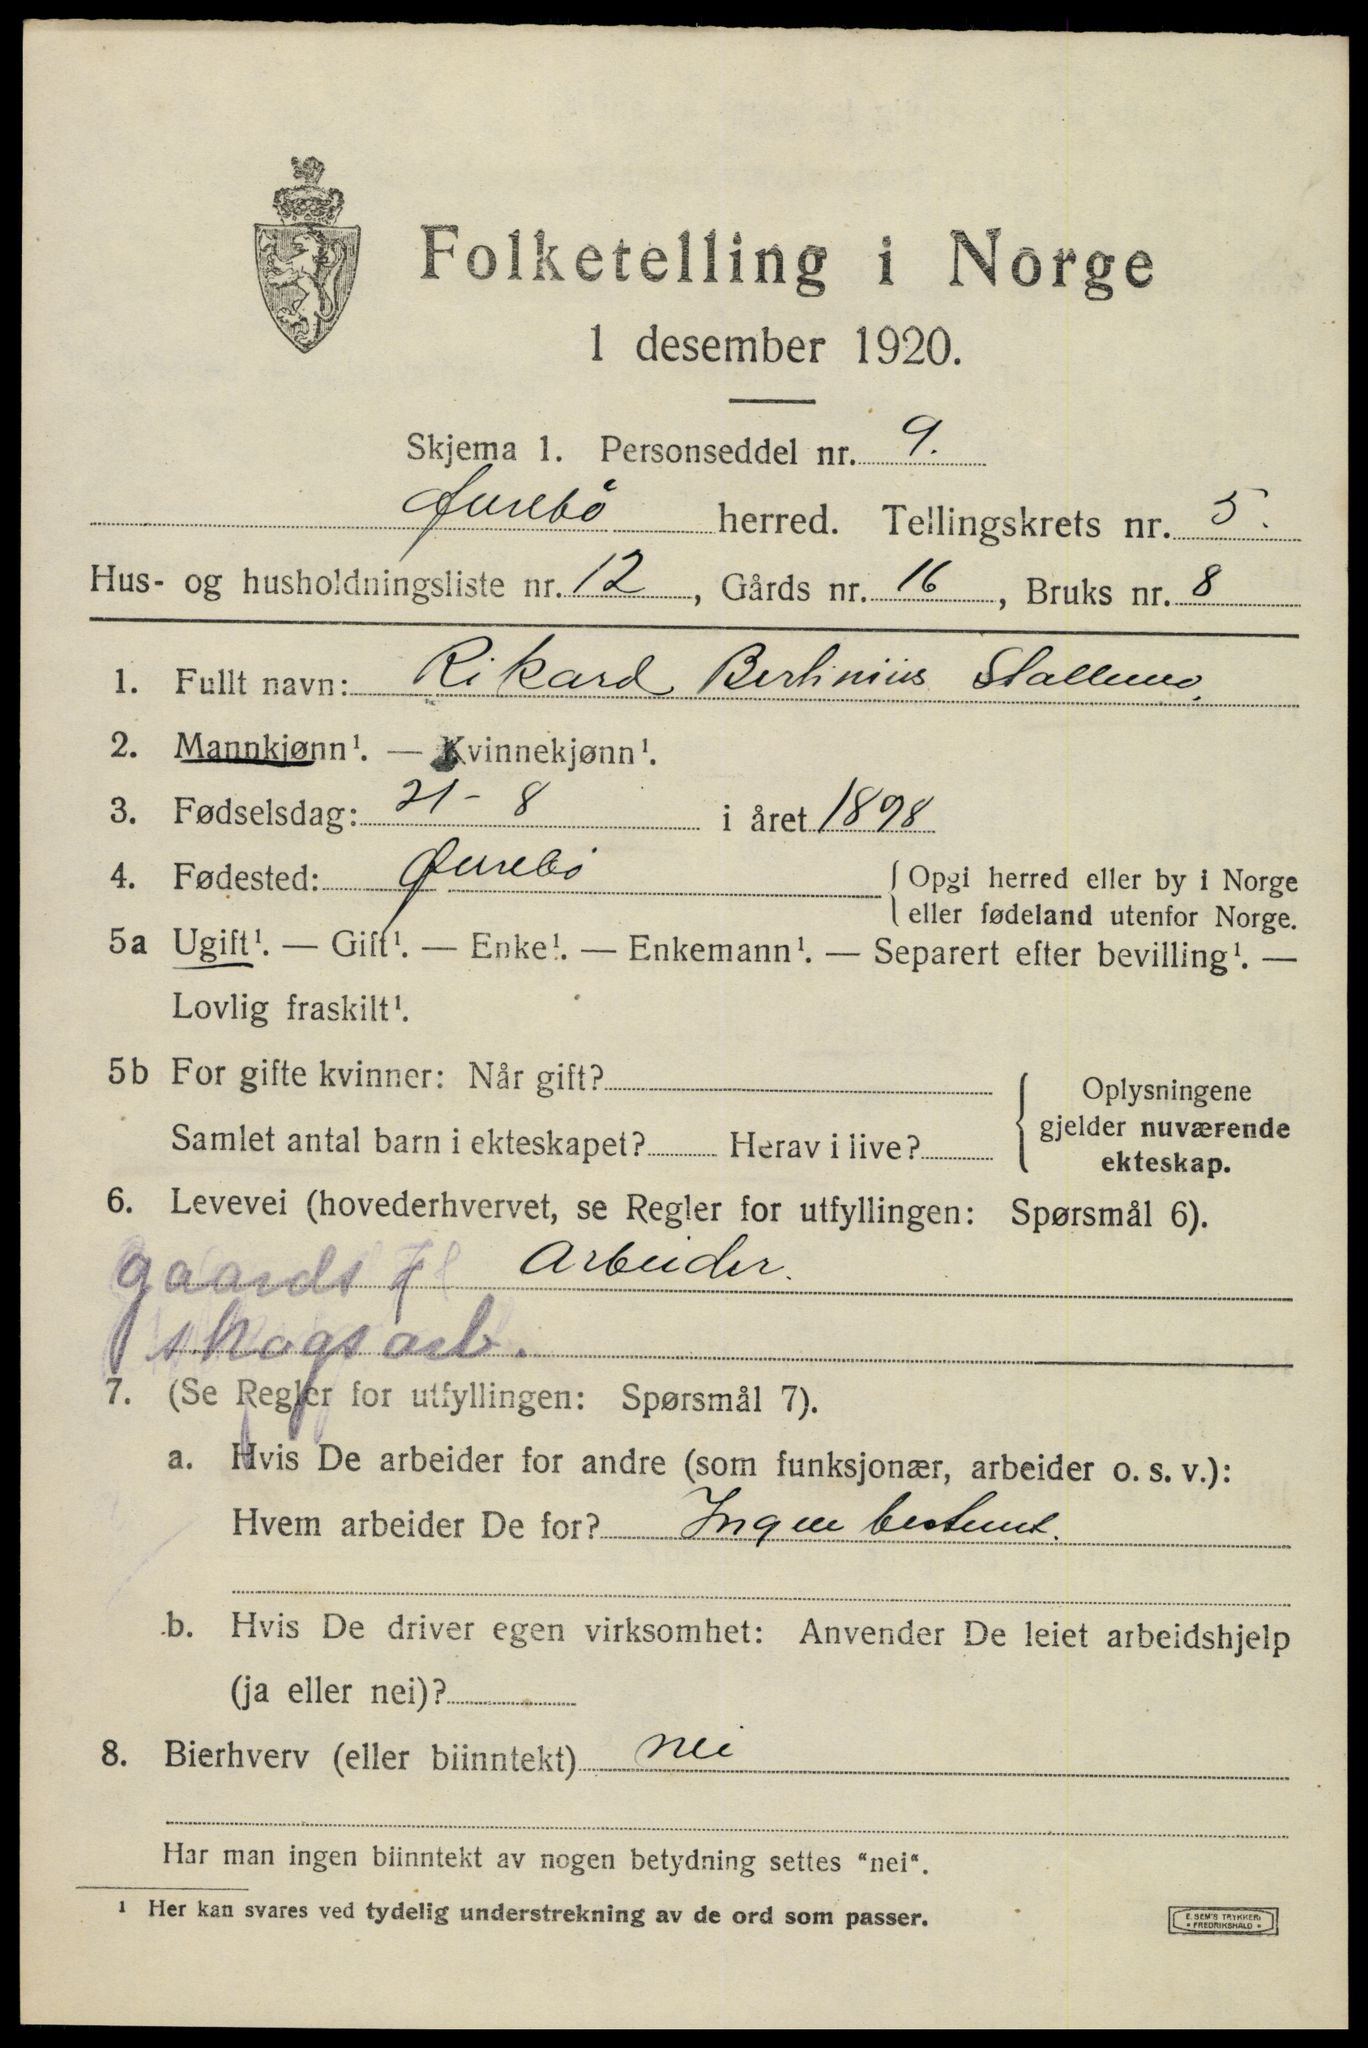 Folketelling i Norge
1 desember 1920.
Skjema 1. Personseddel nr. 9.
Øurebö herred. Tellingskrets nr. 5.
Hus- og husholdningsliste nr. 12, Gårds nr. 16, Bruks nr. 8
1. Fullt navn: Rikard Bertinius
2. Mannkjønn¹. — Kvinnekjønn¹.
3. Fødselsdag: 21-8 i året 1898
4. Fødested: Øurebö { Opgi herred eller by i Norge
eller fødeland utenfor Norge.
5a Ugift¹. — Gift¹. — Enke¹. — Enkemann¹. — Separert efter bevilling¹. —
Lovlig fraskilt¹.
5b For gifte kvinner: Når gift?
Samlet antal barn i ekteskapet? Herav i live?
{ Oplysningene
gjelder nuværende
ekteskap.
6. Levevei (hovederhvervet, se Regler for utfyllingen: Spørsmål 6).
gaards Arbeider.
skogsarb.
7. (Se Regler for utfyllingen: Spørsmål 7).
a. Hvis De arbeider for andre (som funksjonær, arbeider o. s. v.):
Hvem arbeider De for? Ingen bestemt.
b. Hvis De driver egen virksomhet: Anvender De leiet arbeidshjelp
(ja eller nei)?
8. Bierhverv (eller biinntekt) nei
Har man ingen biinntekt av nogen betydning settes "nei".
1 Her kan svares ved tydelig understrekning av de ord som passer.
E. SEM'S TRYKKERI
* FREDRIKSHALD *